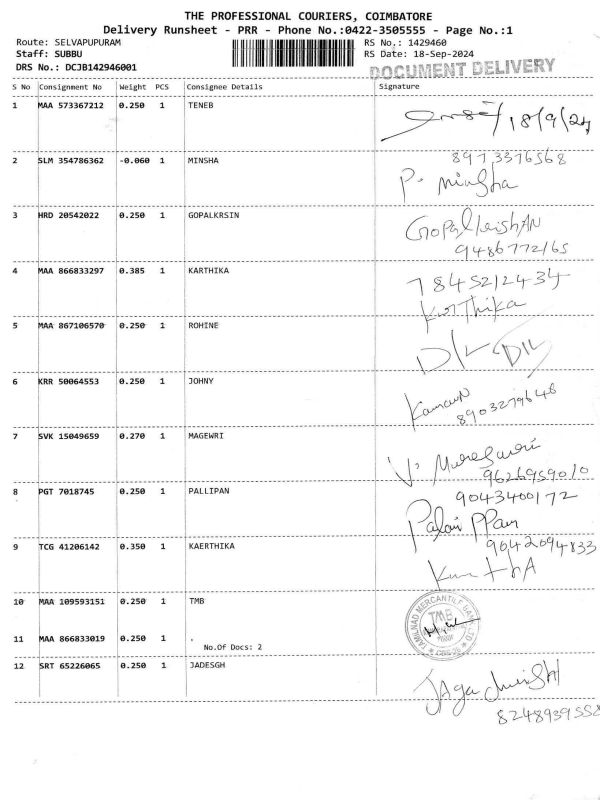 THE PROFESSIONAL COURIERS, COIMBATORE
Delivery Runsheet - PRR - Phone No.:0422-3505555 - Page No.:1
Route: SELVAPUPURAM RS No.: 1429460
Staff: SUBBU RS Date: 18-Sep-2024
DRS No.: DCJB142946001 DOCUMENT DELIVERY
S No Consignment No Weight PCS Consignee Details Signature
1 MAA 573367212 0.250 1 TENEB
18/9/24
2 SLM 354786362 -0.060 1 MINSHA 8973376568
P. minsha
3 HRD 20542022 0.250 1 GOPALKRSIN
9486772165
4 MAA 866833297 0.385 1 KARTHIKA 7845212434
Karthika
5 MAA 867106570 0.250 1 ROHINE D/L
6 KRR 50064553 0.250 1 JOHNY
8903279648
7 SVK 15049659 0.270 1 MAGEWRI
9626959010
8 PGT 7018745 0.250 1 PALLIPAN 9043400172
9 TCG 41206142 0.350 1 KAERTHIKA 9042094833
10 MAA 109593151 0.250 1 TMB TAMILNAD MERCANTILE BANK LTD
TMB
11 MAA 866833019 0.250 1 .
No.Of Docs: 2
12 SRT 65226065 0.250 1 JADESGH
8248939558